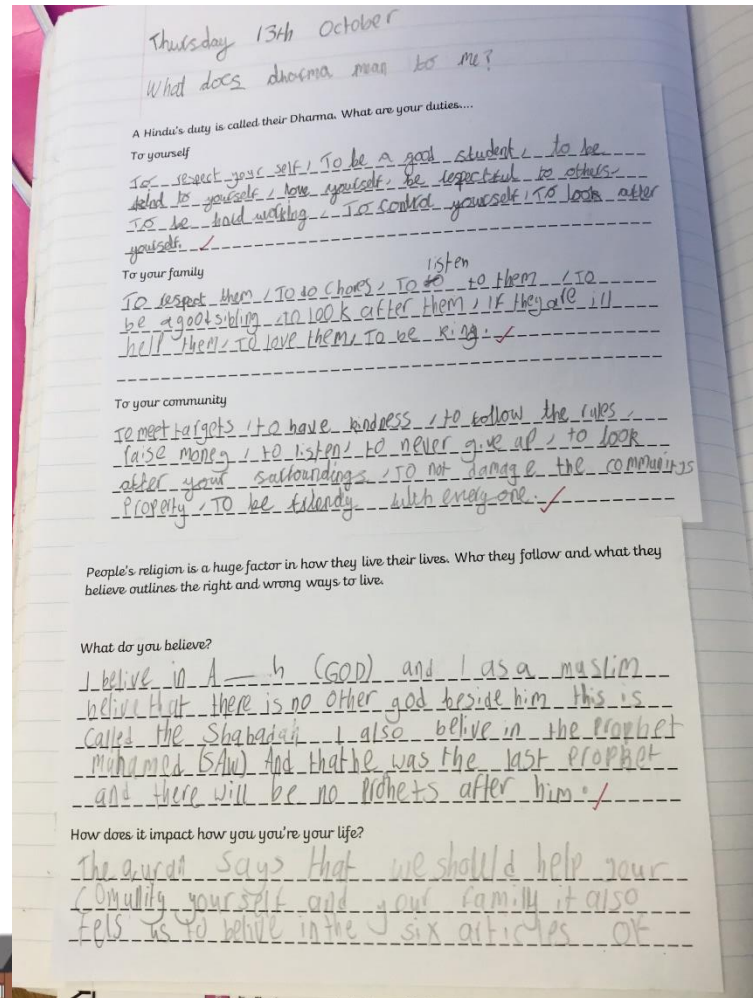 Thursday 13th October
What does dharma mean to me?
A Hindu's duty is called their Dharma. What are your duties....
To yourself
To respect your self, To be a good student, to be
kind to yourself, love yourself, be respectful to others,
To be hard working, To control yourself, To look after
yourself.
To your family
listen
To respect them, To do chores, To to to them, To
be a good sibling, to look after them, if they are ill
help them, To love them, To be king.
To your community
To meet targets, to have kindness, to follow the rules,
raise money, to listen, to never give up, to look
after your sarroundings, To not damage the communitys
Property, To be frlendy with every one.
People's religion is a huge factor in how they live their lives. Who they follow and what they
believe outlines the right and wrong ways to live.
What do you believe?
I belive in A——h (GOD) and I as a muslim
belive that there is no other god beside him this is
called the Shahadah I also belive in the prophet
Muhamed (SAW) And that he was the last prophet
and there will be no prohets after him.
How does it impact how you you're your life?
The quran says that we should help your
Comunity yourself and your family it also
tels us to belive in the six articles of